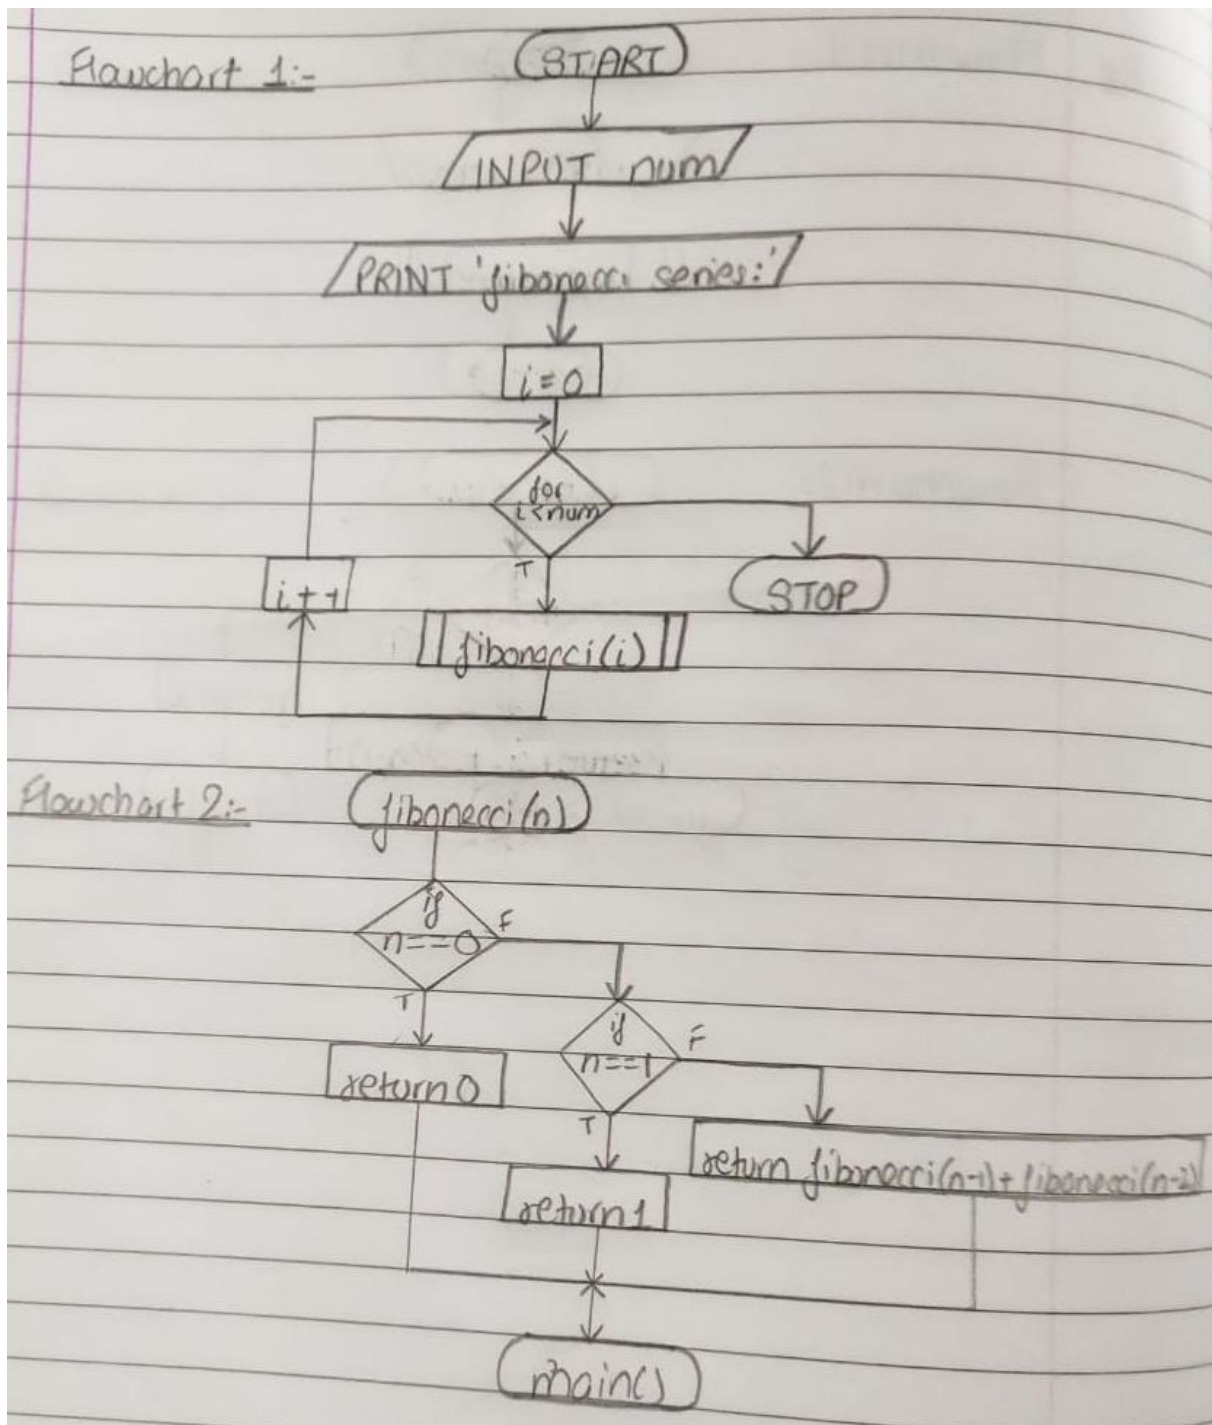 Flowchart 1:-
START
INPUT num
PRINT 'fibonacci series:'
i=0
for
i<num
T
i++
STOP
fibonacci(i)
Flowchart 2:-
fibonecci(n)
if
n==0
F
T
if
n==1
F
return 0
T
return fibonecci(n-1)+fibonecci(n-2)
return 1
main()